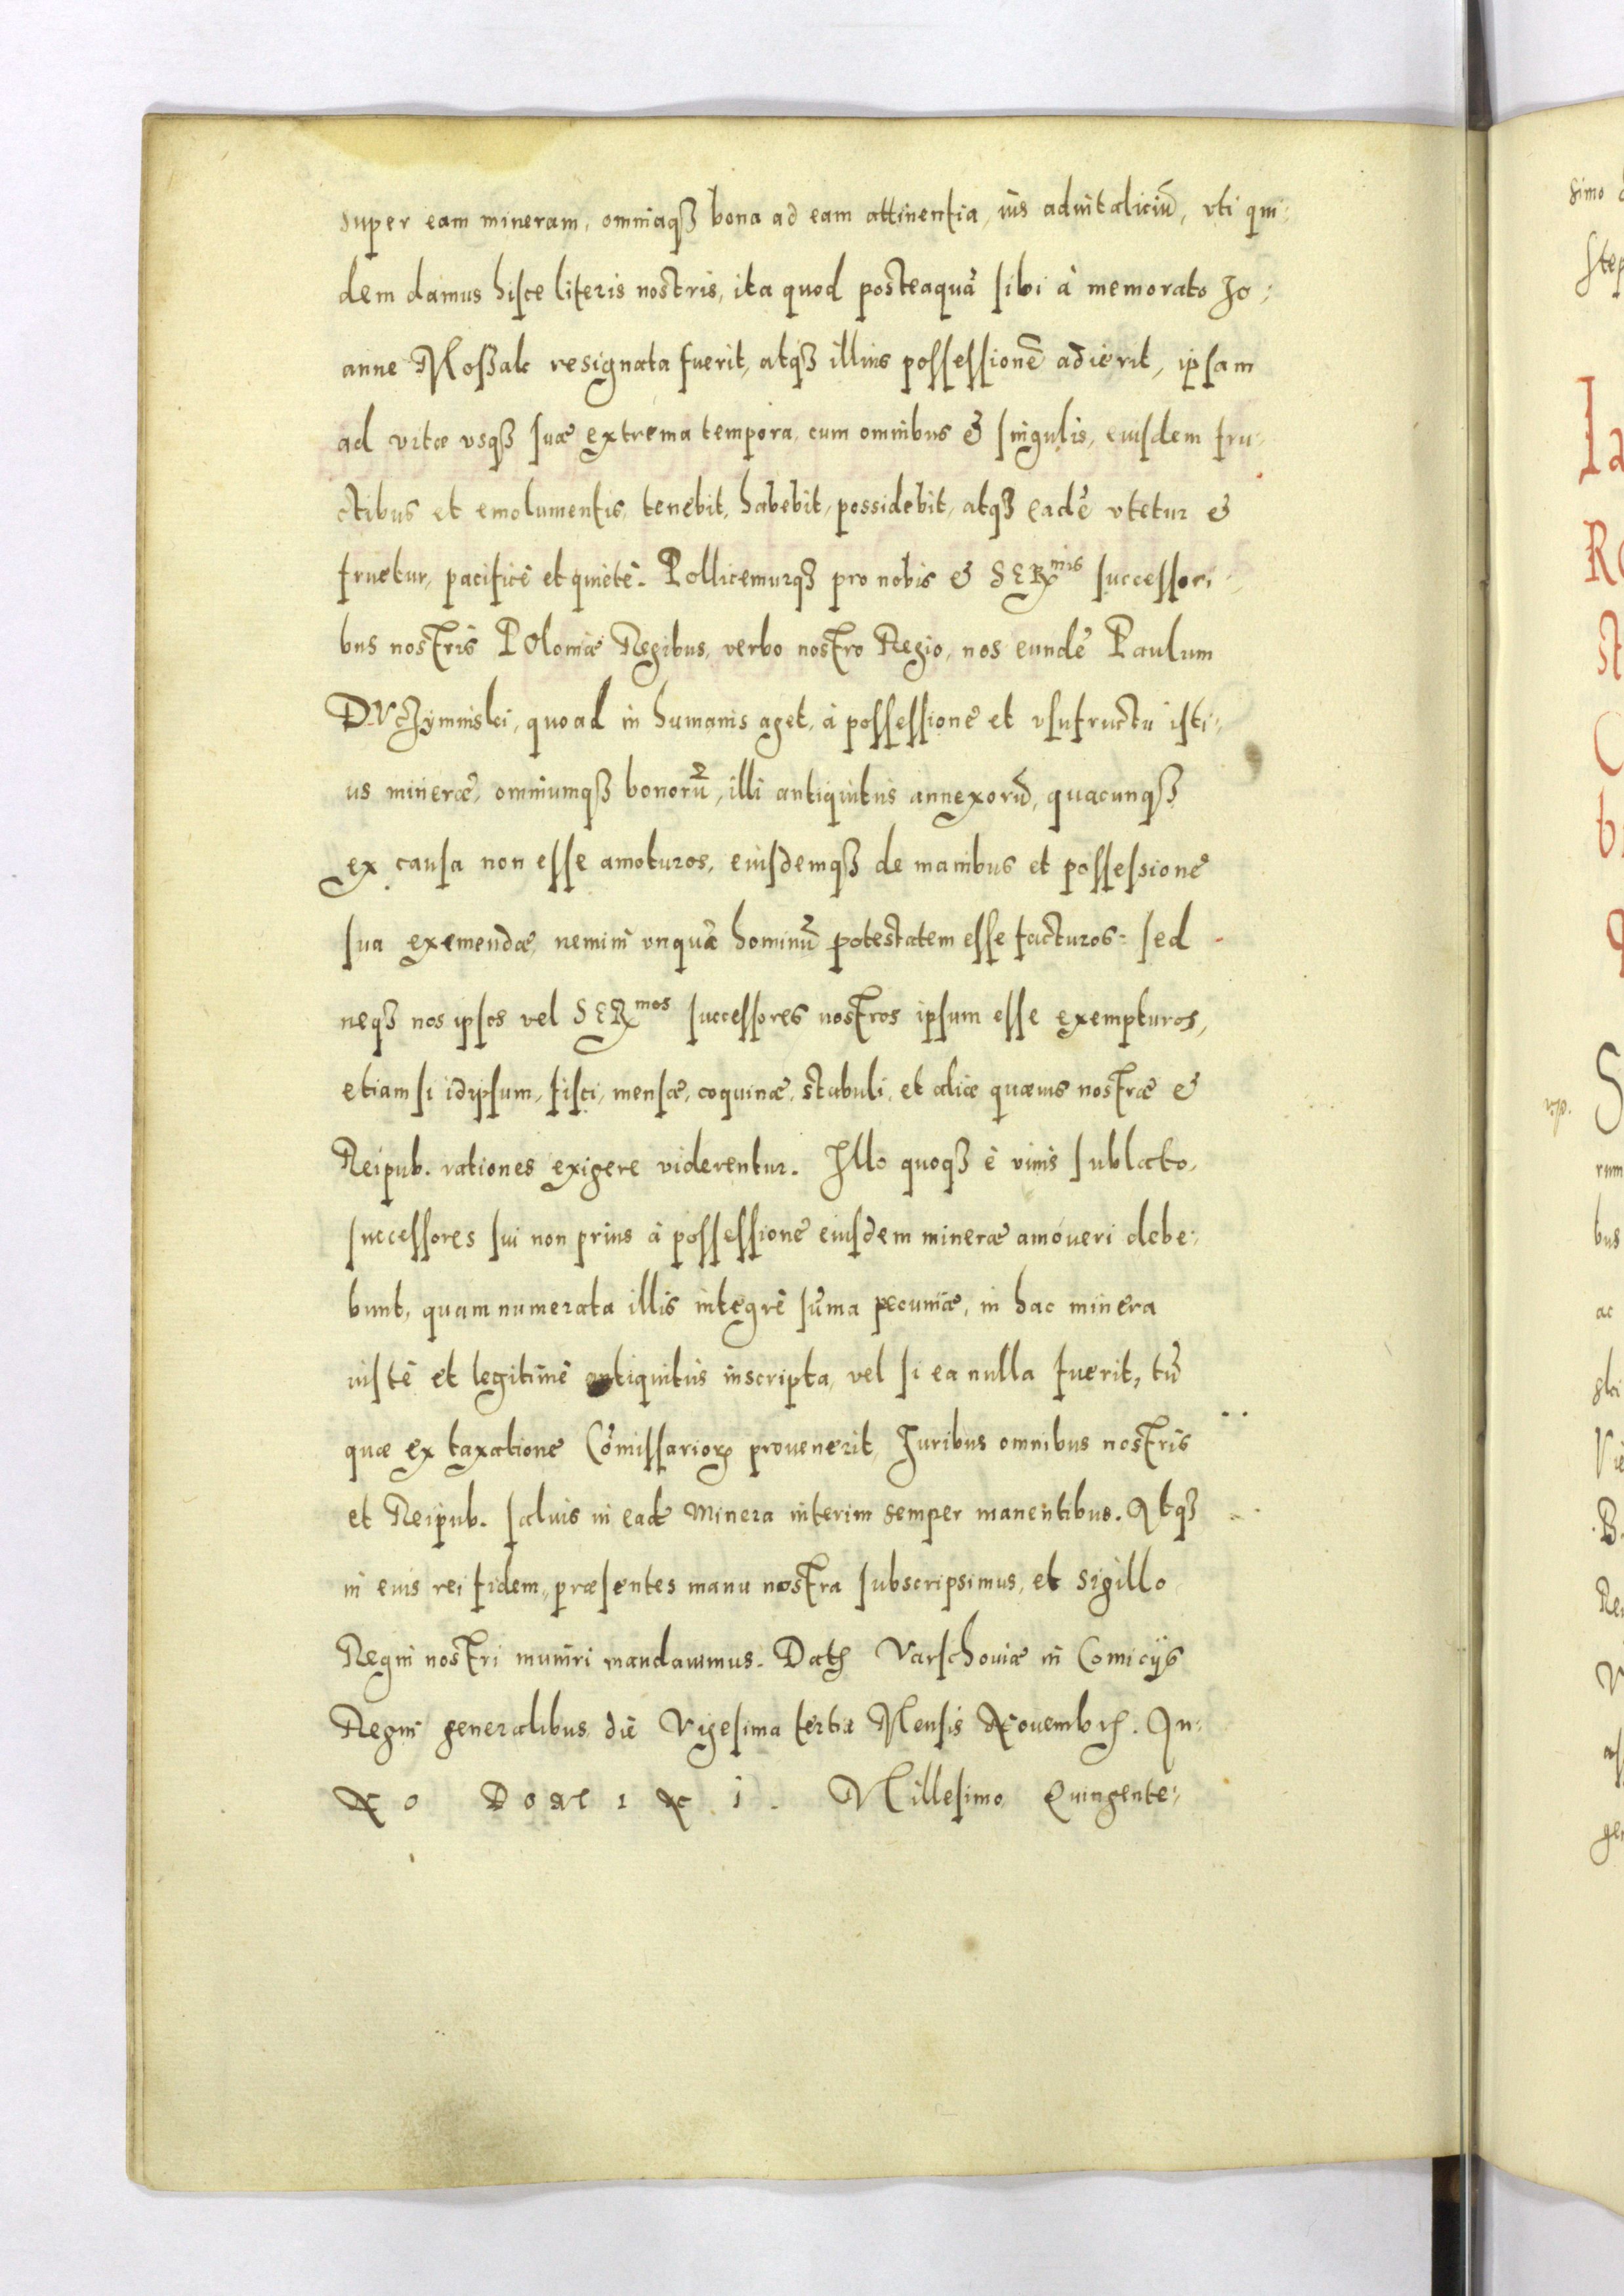 super eam mineram, omniaqꝫ bona ad eam attinentia, ius aduitaliciū, vti qui-
dem damus hisce literis nostris, ita quod posteaquã sibi à memorato Jo-
anne Moßak resignata fuerit, atqꝫ illius possessionē adierit, ipsam
ad vitæ vsqꝫ suæ extrema tempora, cum omnibus & singulis, eiusdem fru-
ctibus et emolumentis, tenebit, habebit, possidebit, atqꝫ eadē vtetur &
fruetur, pacificè et quietè. Pollicemurqꝫ pro nobis & SER^mis successori-
bus nostris Poloniæ Regibus, verbo nostro Regio, nos eundē Paulum
quoad in humanis aget, à possessione et vsufructu isti-
us mineræ, omniumqꝫ bonorū, illi antiquitus annexorū, quacunqꝫ
ex causa non esse amoturos, eiusdemqꝫ de manibus et possessione
sua exemendæ, nemini vnquã hominū potestatem esse facturos: sed
neqꝫ nos ipsos vel SER^mos successores nostros ipsum esse exempturos,
etiamsi idipsum, fisci, mensæ, coquinæ, stabuli, et aliæ quæuis nostræ &
Reipub. rationes exigere viderentur. Illo quoqꝫ è viuis sublato,
successores sui non prius à possessione eiusdem mineræ amoueri debe-
bunt, quam numerata illis integrè sūma pecuniæ, in hac minera
iustè et legitimè antiquitùs inscripta, vel si ea nulla fuerit, tū
quæ ex taxatione Cōmissarioꝝ prouenerit, Juribus omnibus nostris
et Reipub. saluis in eadē Minera interim semper manentibus. Atqꝫ
in eius rei fidem, præsentes manu nostra subscripsimus, et sigillo
Regni nostri muniri mandauimus. Datꝭ Varschouiæ in Comicijs
Regni generalibus, die Vigesima tertia Mensis Nouembrꝭ. An-
NO DOMINI. Millesimo Quingente-